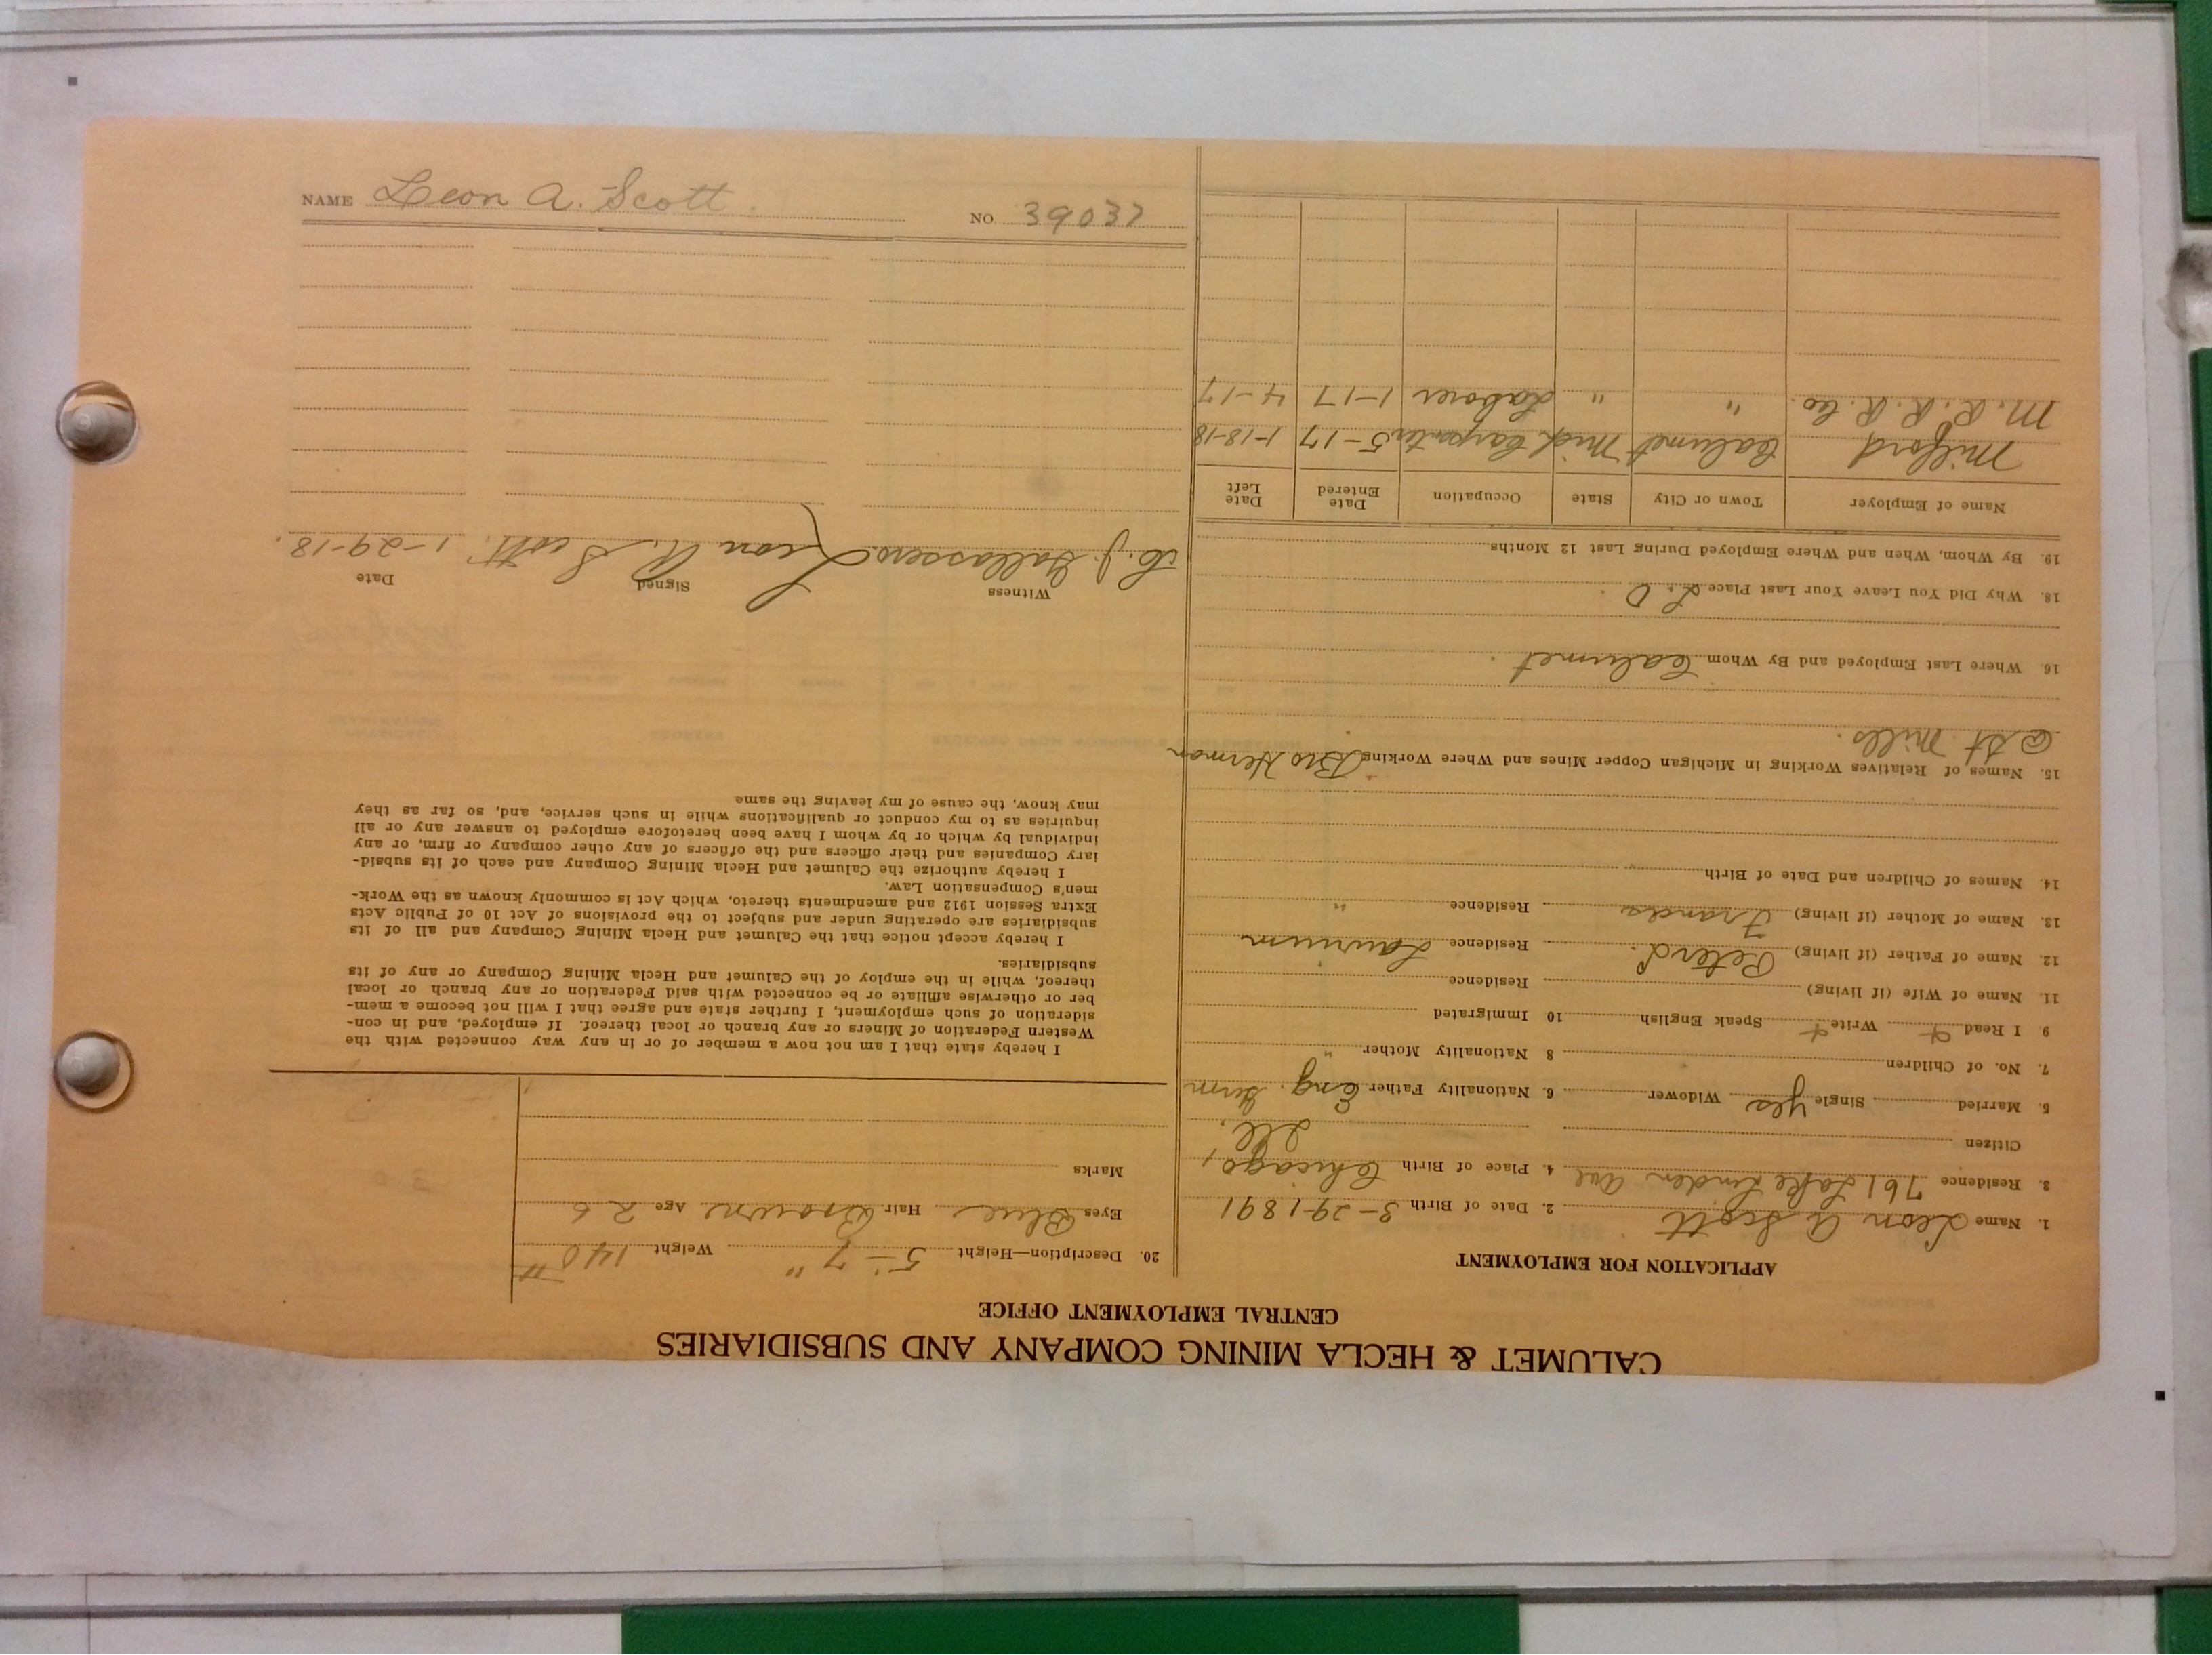 CALUMET & HECLA MINING COMPANY AND SUBSIDIARIES
CENTRAL EMPLOYMENT OFFICE
APPLICATION FOR EMPLOYMENT
1. Name Leon A Scott 2. Date of Birth 3-29-1891
3. Residence 761 Lake Linden Ave 4. Place of Birth Chicago,
Citizen Ill.
5. Married Single yes Widower 6. Nationality Father Eng. Germ
7. No. of Children 8 Nationality Mother "
9. I Read Write Speak English 10 Immigrated
11. Name of Wife (if living) Residence
12. Name of Father (if living) Peter S. Residence Laurium
13. Name of Mother (if living) Frances Residence "
14. Names of Children and Date of Birth
15. Names of Relatives Working in Michigan Copper Mines and Where Working Bro Herman
@ St Mills.
16. Where Last Employed and By Whom Calumet.
18. Why Did You Leave Your Last Place L. O.
19. By Whom, When and Where Employed During Last 12 Months
Name of Employer Town or City State Occupation Date Entered Date Left
Milford Calumet Mich Carpenter 5-17 1-18-18
M. R. R. R. Co. " " Laborer 1-17 4-17
20. Description—Height 5'-7" Weight 140 #
Eyes Blue Hair Brown Age 26
Marks
I hereby state that I am not now a member of or in any way connected with the
Western Federation of Miners or any branch or local thereof. If employed, and in con-
sideration of such employment, I further state and agree that I will not become a mem-
ber or otherwise affiliate or be connected with said Federation or any branch or local
thereof, while in the employ of the Calumet and Hecla Mining Company or any of its
subsidiaries.
I hereby accept notice that the Calumet and Hecla Mining Company and all of its
subsidiaries are operating under and subject to the provisions of Act 10 of Public Acts
Extra Session 1912 and amendments thereto, which Act is commonly known as the Work-
men's Compensation Law.
I hereby authorize the Calumet and Hecla Mining Company and each of its subsid-
iary Companies and their officers and the officers of any other company or firm, or any
individual by which or by whom I have been heretofore employed to answer any or all
inquiries as to my conduct or qualifications while in such service, and, so far as they
may know, the cause of my leaving the same
Witness Signed Date
Leon A. Scott. 1-29-18.
NAME Leon A. Scott. NO. 39037